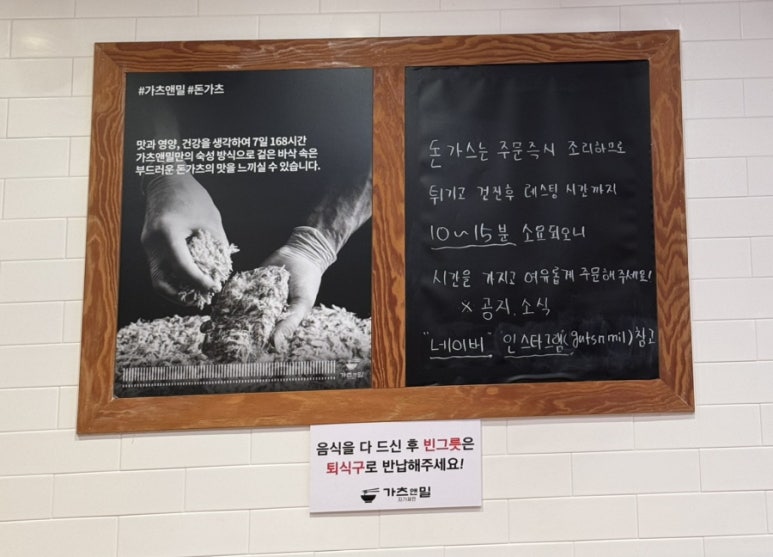 #가츠앤밀 #돈가츠
맛과 영양, 건강을 생각하여 7일 168시간
가츠앤밀만의 숙성 방식으로 겉은 바삭 속은
부드러운 돈가츠의 맛을 느끼실 수 있습니다.
가츠앤밀
돈가스는 주문즉시 조리하므로
튀기고 건진후 레스팅 시간까지
10~15분 소요되오니
시간을 가지고 여유롭게 주문해주세요!
× 공지.소식
"네이버" 인스타그램(gutsnmil)참고
음식을 다 드신 후 빈그릇은
퇴식구로 반납해주세요!
가츠앤밀